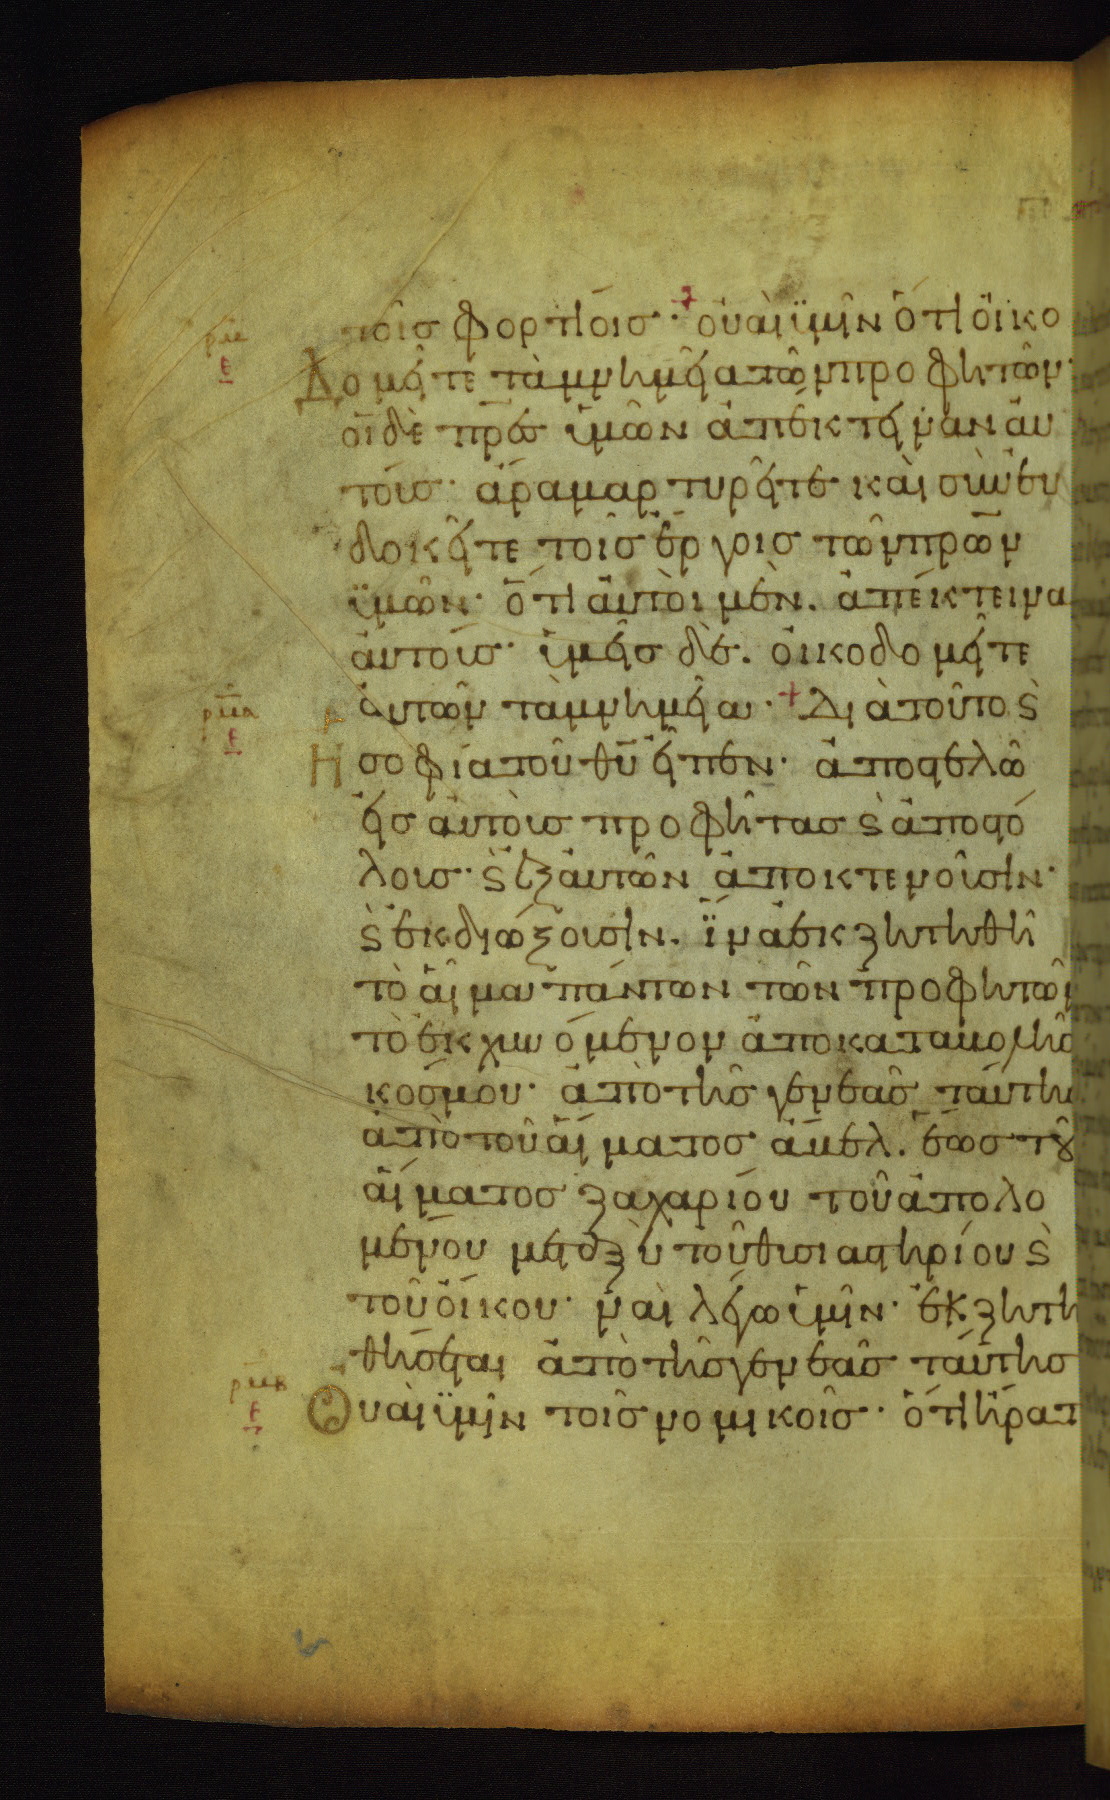 ρμ τοῖσ φορτίοισ· οὐαὶ ὑμῖν ὅτι οἰκο
ε
δομεῖτε τὰ μνημεῖα τῶν προφητῶν·
οἱ δὲ πρ̅εσ ὑμῶν ἀπέκτειναν αὐ
τούσ· ἄρα μαρτυρεῖτε καὶ συνευ
δοκεῖτε τοῖσ ἔργοισ τῶν πρ̅ων
ὑμῶν· ὅτι αὐτοὶ μὲν. ἀπέκτεινα
αὐτούσ· ὑμεῖσ δὲ. οἰκοδομεῖτε
αὐτῶν τὰ μνημεῖα· + Διὰ τοῦτο ϗ
ρμα
ε
Η σοφία τοῦ θ̅υ εἶπεν· ἀποστελῶ
εἰσ αὐτοὺσ προφήτασ ϗ ἀποστό
λουσ· ϗ ἐξ αὐτῶν ἀποκτενοῦσιν·
ϗ ἐκδιώξουσιν. ἵνα ἐκζητηθῆ
τὸ αἷμα πάντων τῶν προφητῶν
τὸ ἐκχυνόμενον ἀπὸ καταβολῆσ
κόσμου· ἀπὸ τῆσ γενεᾶσ ταύτησ
ἀπὸ τοῦ αἵματοσ ἄβελ. ἕωσ τοῦ
αἵματοσ ζαχαρίου τοῦ ἀπολο
μένου μεταξὺ τοῦ θυσιαστηρίου ϗ
τοῦ οἴκου· ναὶ λέγω ὑμῖν· ἐκζητη
θήσεται ἀπὸ τῆσ γενεᾶσ ταύτησ
ρμβ
ε
Οὐαὶ ὑμῖν τοῖσ νομικοῖσ· ὅτι ἤρατ